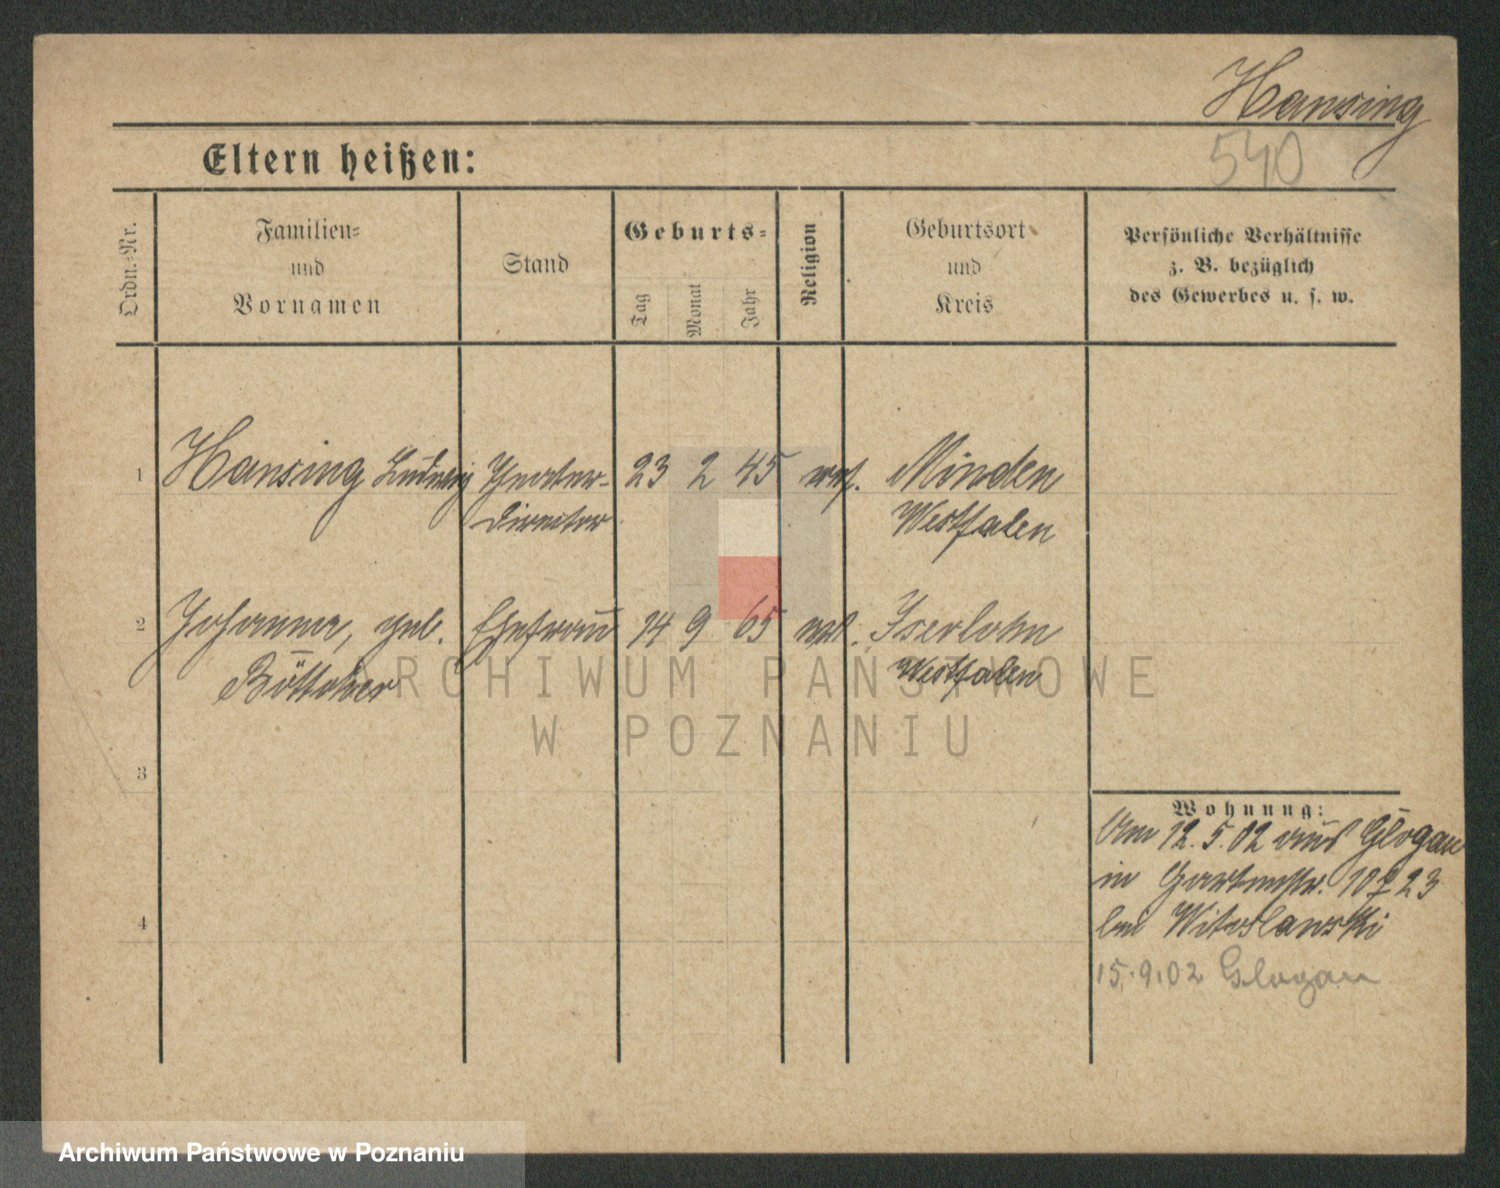 Hansing
540
Eltern heißen:
Ordn.-Nr.
Familien-
und
Vornamen
Stand
Geburts-
Tag
Monat
Jahr
Religion
Geburtsort
und
Kreis
Persönliche Verhältnisse
z. B. bezüglich
des Gewerbes u. s. w.
1 Hansing Ludwig Theater- 23 2 45 Minden
director Westfalen
2 Johanna, geb. Ehefrau 14 9 65 Iserlohn
Böttcher Westfalen
3
4
Wohnung:
Am 12.5.02 aus Glogau
in Gartenstr. 23
bei Witoslawski
15.9.02 Glogau
ARCHIWUM PAŃSTWOWE
W POZNANIU
Archiwum Państwowe w Poznaniu